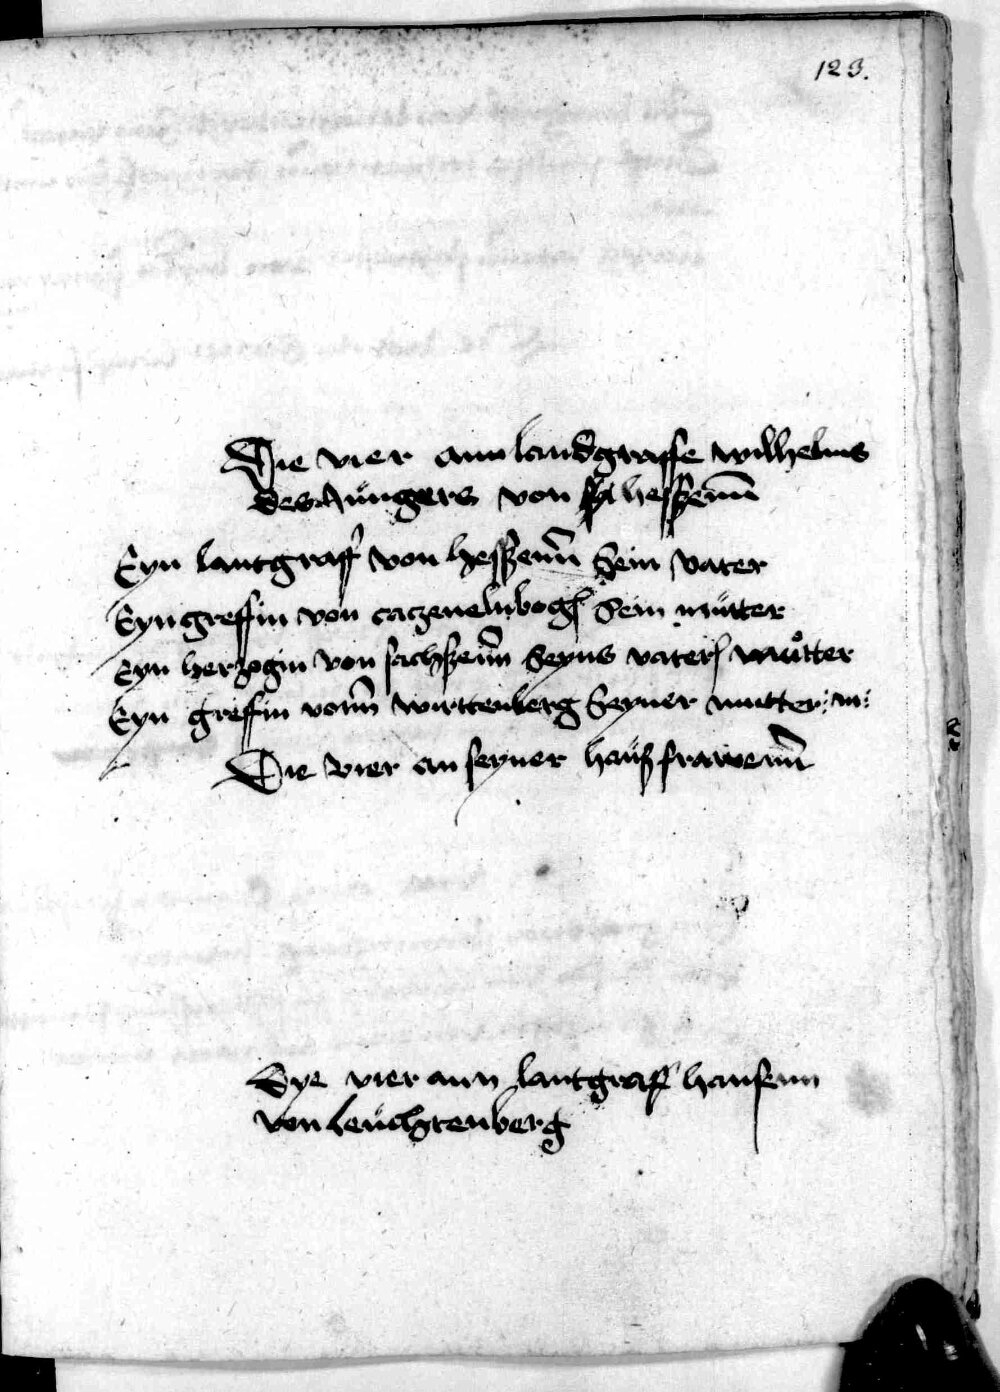 123.
Die vier ann landgraffe wilhelms
des Jüngers von hesszenn
Eyn lantgraff von hesszenn Sein vater
Eyn greffin von caczenelnbog Sein mütter
Eyn herzogin von sachszenn Seyns vaters můtter
Eyn greffin vonn wirttenberg Seyner mutter: m:
Die vier an seyner haüszfrawenn
Dye vier ann lantgraff hansenn
von Leüchtenberg